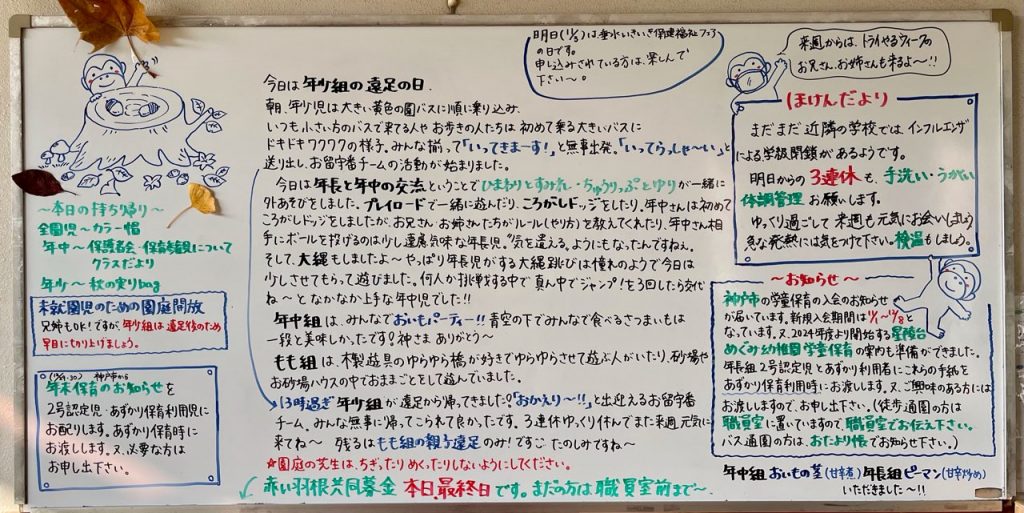 明日(11/3)は垂水いきいき保健福祉フェア
の日です。
申し込みされている方は、楽しんで
下さい〜。
来週からは、トライやるウィークの
お兄さん、お姉さんも来るよ〜!!
今日は 年少組の遠足の日、
朝、年少児は大きい黄色の園バスに順に乗り込み、
いつも小さい方のバスで来てる人や お歩きの人たちは 初めて乗る大きいバスに
ドキドキワクワクの様子。みんな揃って「いってきまーす!」と無事出発。「いってらっしゃ〜い」と
送り出し、お留守番チームの活動が始まりました。
今日は 年長と年中の交流ということで ひまわりとすみれ・ちゅうりっぷとゆりが一緒に
外あそびをしました。プレイロードで一緒に遊んだり、ころがしドッジをしたり、年中さんは初めて
ころがしドッジをしましたが、お兄さん・お姉さんたちがルール(やり方)を教えてくれたり、年中さん相
手にボールを投げるのは少し遠慮気味な年長児。"気を遣える"ようにもなったんですねぇ。
そして、大縄もしましたよ〜 やっぱり年長児がする大縄跳びは憧れのようで今日は
少しさせてもらって遊びました。何人か挑戦する中で 真ん中でジャンプ!を3回したら交代
ね〜 となかなか上手な年中児でした!!
年中組は、みんなでおいもパーティー!! 青空の下でみんなで食べるさつまいもは
一段と美味しかったです♡神さま ありがとう〜
もも組は、木製遊具のゆらゆら橋が好きでゆらゆらさせて遊ぶ人がいたり、砂場や
お砂場ハウスの中でおままごとをして遊んでいました。
13時過ぎ 年少組が遠足から帰ってきました♡「おかえり〜!!」と出迎えるお留守番
チーム。みんな無事に帰ってこられて良かったです。3連休ゆっくり休んでまた来週 元気に
来てね〜 残るは もも組の親子遠足のみ!です♡ たのしみですね〜
☆園庭の芝生は、ちぎったり めくったりしないようにしてください。
赤い羽根共同募金 本日、最終日です。まだの方は 職員室前まで〜
〜本日の持ち帰り〜
全園児〜カラー帽
年中〜 保護者会・保育参観について
クラスだより
年少〜 秋の実りbag
未就園児のための園庭開放
兄姉もOK!ですが、年少組は 遠足後のため
早目に切り上げましょう。
神戸市から
年末保育のお知らせを
2号認定児・あずかり保育利用児に
お配りします。あずかり保育時に
お渡しします。又、必要な方は
お申し出下さい。
ほけんだより
まだまだ 近隣の学校では、インフルエンザ
による学級閉鎖があるようです。
明日からの 3連休も、手洗い・うがい
体調管理 お願いします。
ゆっくり過ごして 来週も元気にお会いしましょう
急な発熱には気をつけて下さい。検温もしましょう。
〜お知らせ〜
神戸市の学童保育の入会のお知らせ
が届いています。新規入会期間は 11/1〜12/8と
なっています。又、2024年度より開始する 星陵台
めぐみ幼稚園学童保育の案内も準備ができました。
年長組2号認定児とあずかり利用者にこれらの手紙を
あずかり保育利用時にお渡します。又、ご興味のある方には
お渡しますので、お申し出下さい。(徒歩通園の方は
職員室に置いていますので、職員室でお伝え下さい。
バス通園の方は、おたより帳でお知らせ下さい。)
年中組 おいもの茎(甘辛煮) 年長組 ピーマン(甘辛炒め)
いただきました〜!!